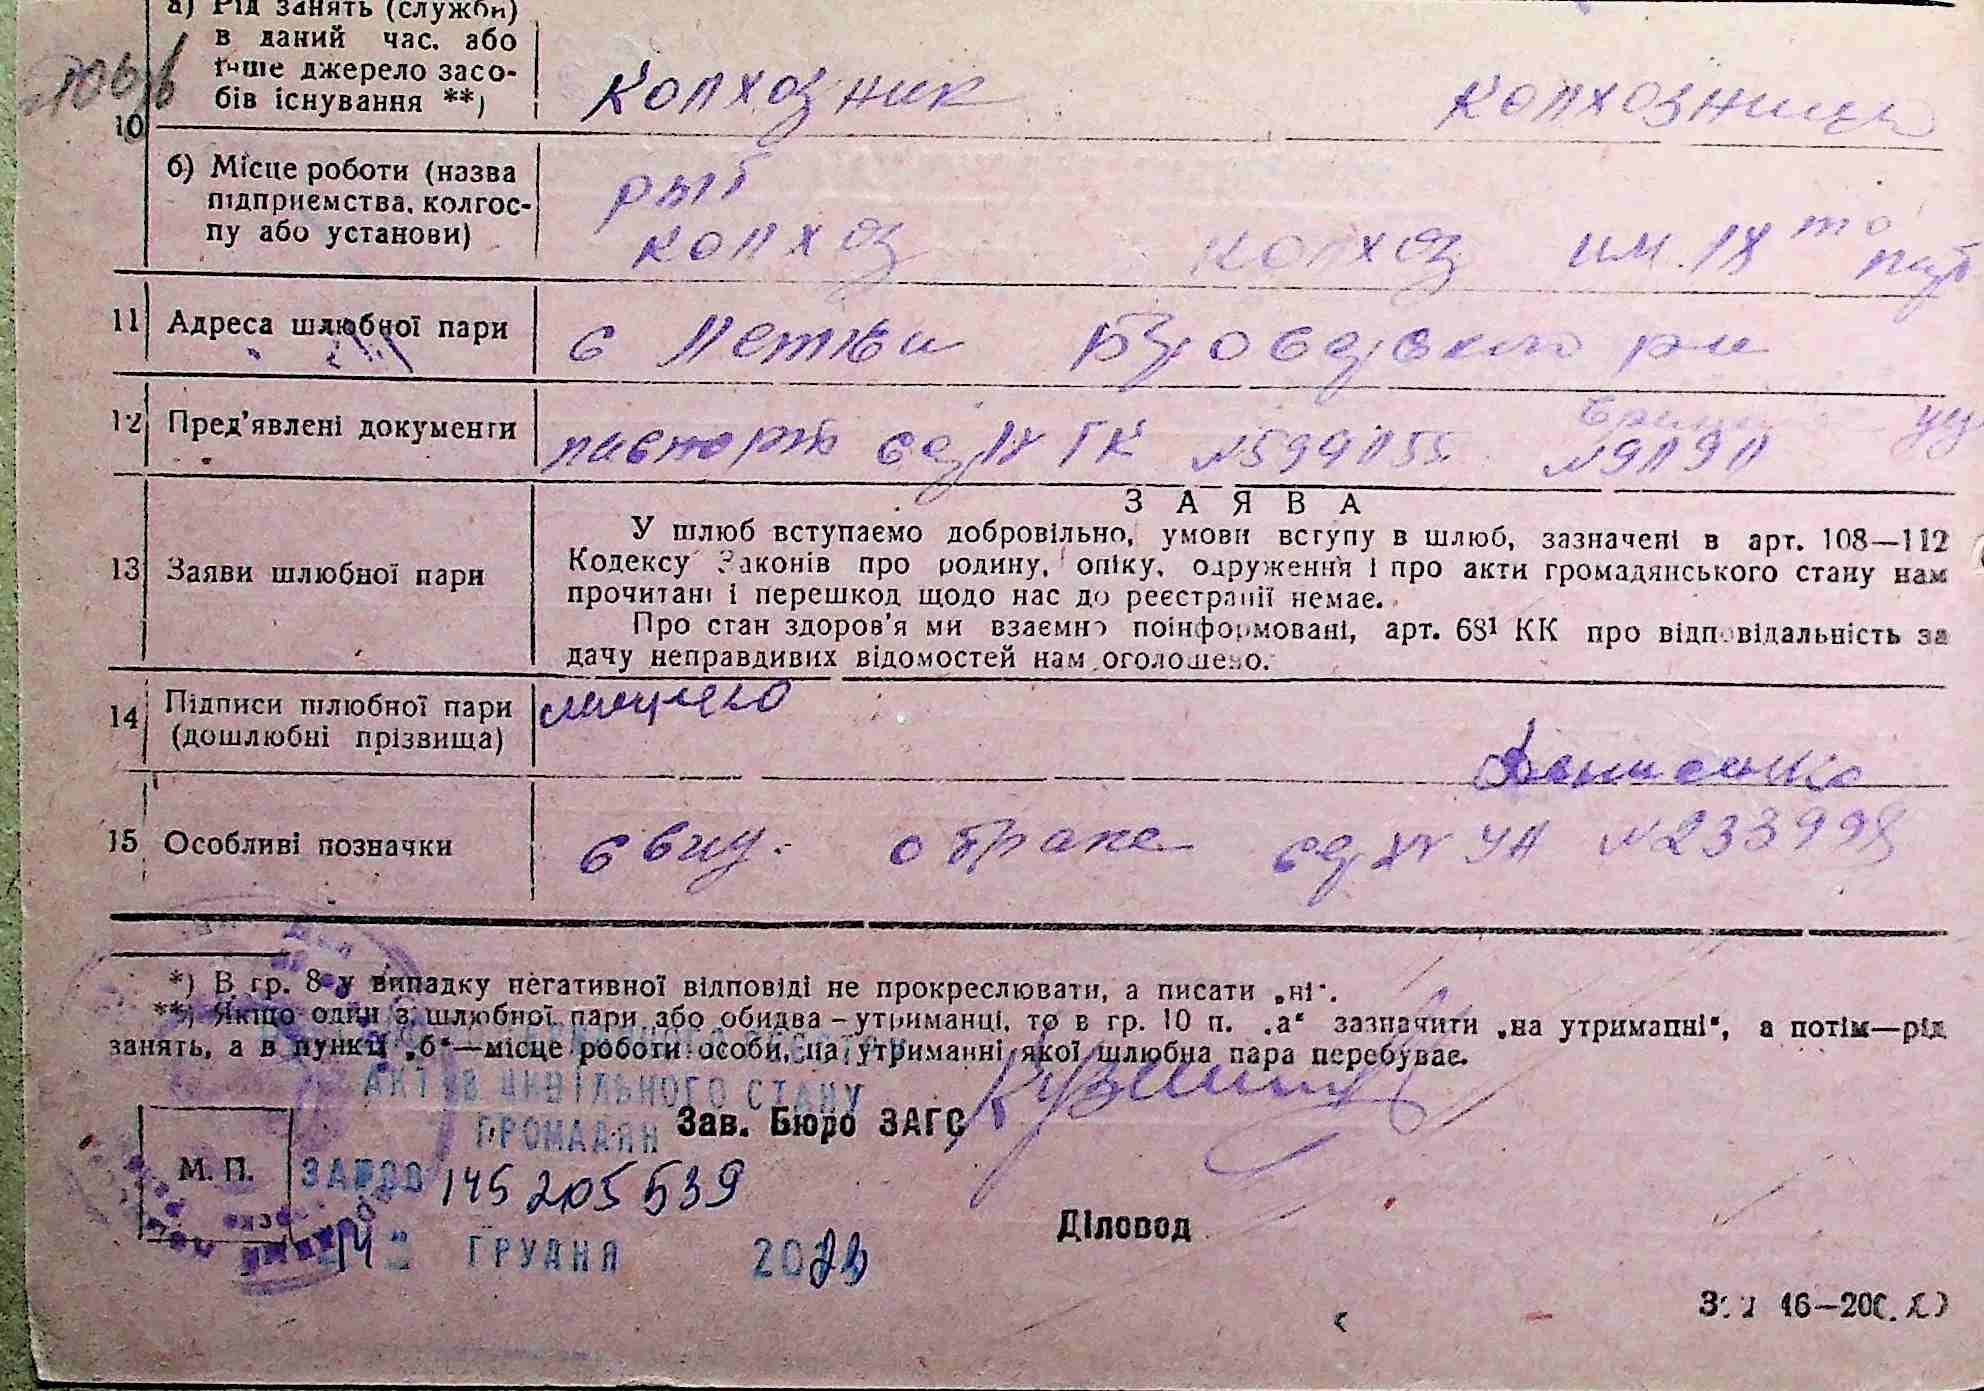 а) Рід занять (служби)
в даний час. або
інше джерело засо-
бів існування **)
Колхозник
колхозница
10
б) Місце роботи (назва
підприємства, колгос-
пу або установи)
рыб
колхоз
колхоз им. 18 то
11 Адреса шлюбної пари
с Летки Броварского р-на
12 Пред'явлені документи
паспорт
ГК №599055
13 Заяви шлюбної пари
ЗАЯВА
У шлюб вступаємо добровільно, умови вступу в шлюб, зазначені в арт. 108—112
Кодексу Законів про родину, опіку, одруження і про акти громадянського стану нам
прочитані і перешкод щодо нас до реєстрації немає.
Про стан здоров'я ми взаємно поінформовані, арт. 68¹ КК про відповідальність за
дачу неправдивих відомостей нам оголошено.
14 Підписи шлюбної пари
(дошлюбні прізвища)
Денисенко
15 Особливі позначки
свид. о браке
№233998
*) В гр. 8 у випадку негативної відповіді не прокреслювати, а писати „ні".
**) Якщо один з шлюбної пари або обидва – утриманці, то в гр. 10 п. „а" зазначити „на утриманні", а потім—рід
занять, а в пункті „б"—місце роботи особи, на утриманні якої шлюбна пара перебуває.
АКТІВ ЦИВІЛЬНОГО СТАНУ
ГРОМАДЯН
Зав. Бюро ЗАГС
М. П.
145 205 539
Діловод
ГРУДНЯ 20